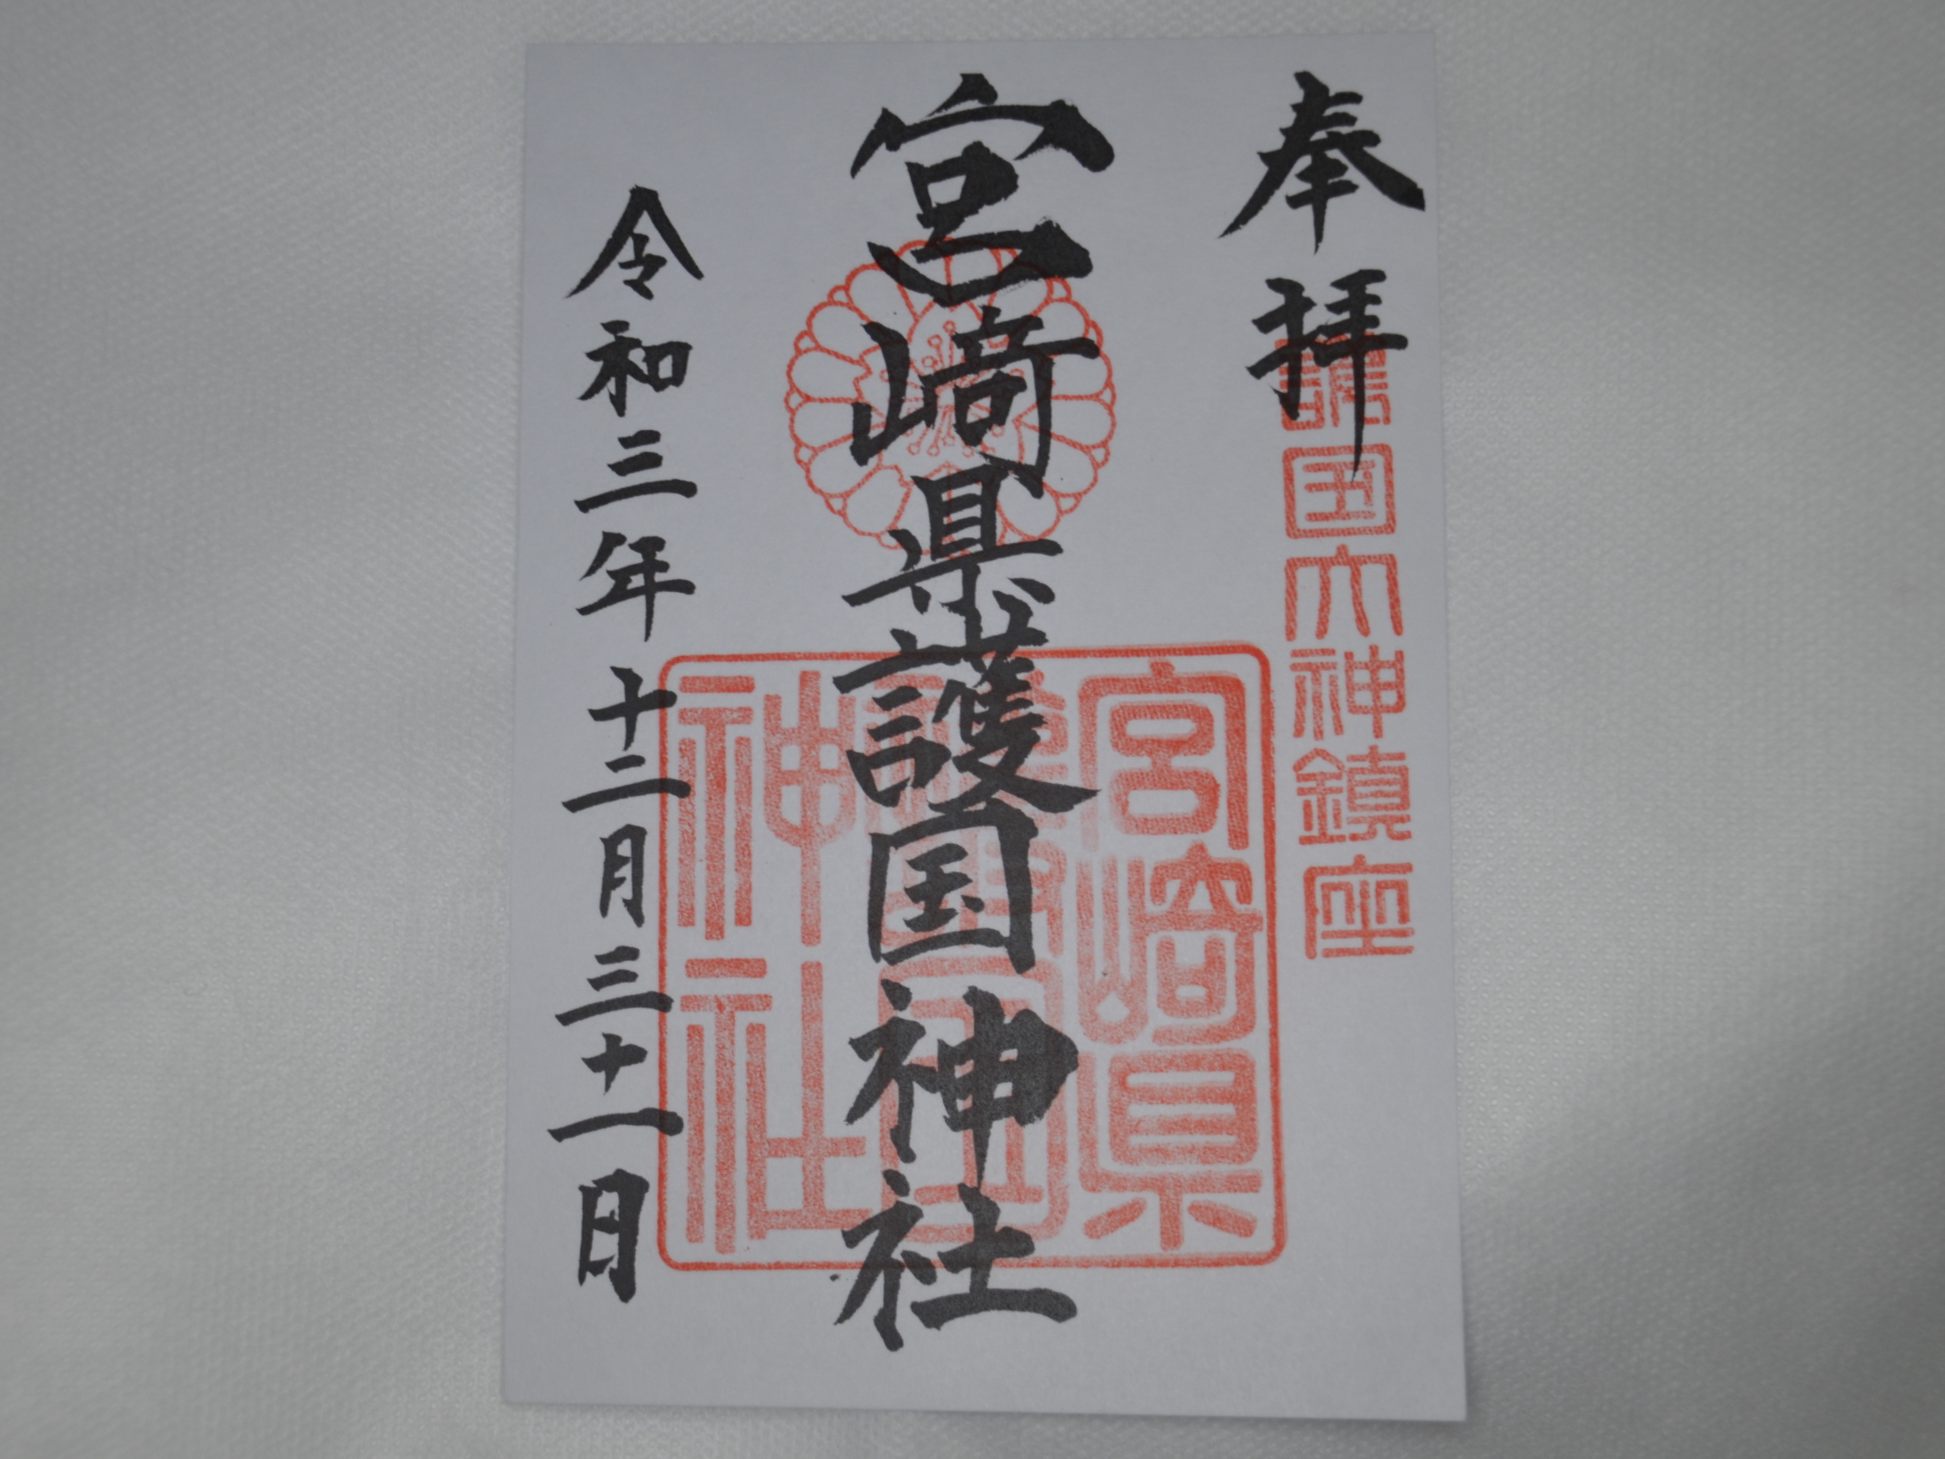 奉拝
護国大神鎮座
宮﨑県護国神社
宮﨑県
護国
神社
令和三年十二月三十一日